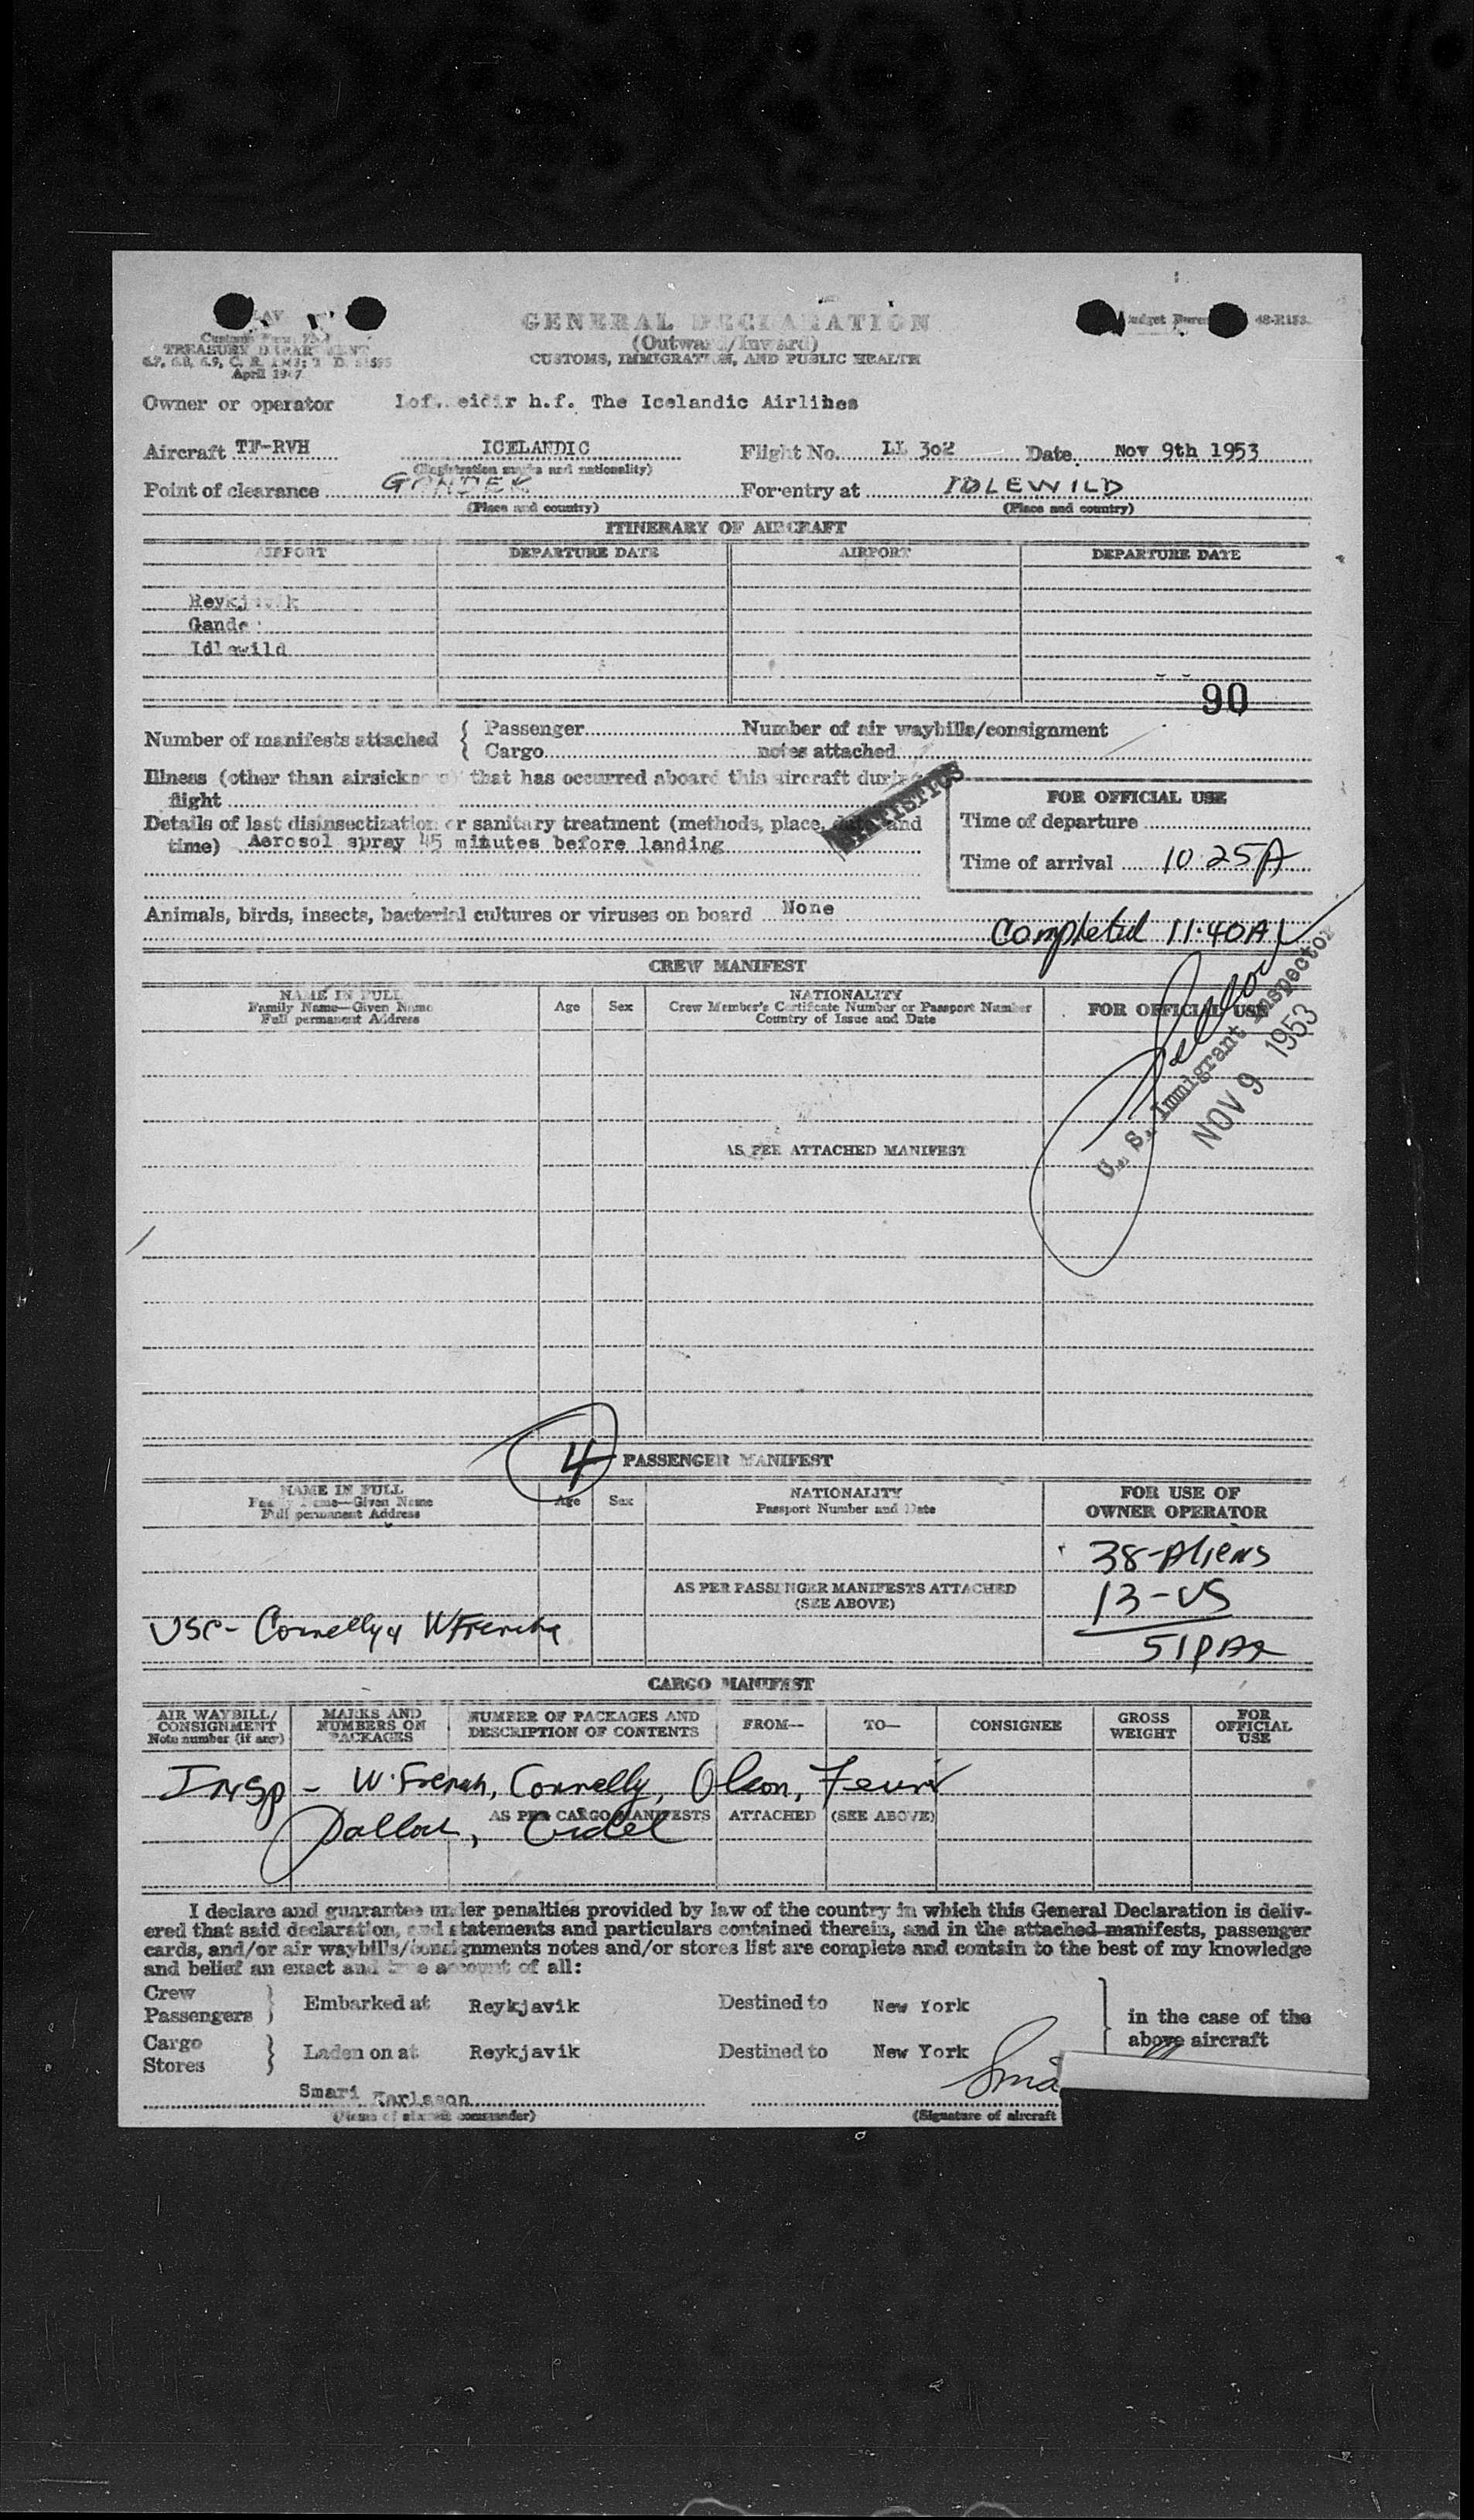 GENERAL DECLARATION
(Outward/Inward)
CUSTOMS, IMMIGRATION, AND PUBLIC HEALTH
TREASURY DEPARTMENT
April 1947
48-R183
Owner or operator Loftleidir h.f. The Icelandic Airlines
Aircraft TF-RVH ICELANDIC Flight No. LL 302 Date Nov 9th 1953
(Registration marks and nationality)
Point of clearance GANDER For entry at IDLEWILD
(Place and country) (Place and country)
ITINERARY OF AIRCRAFT
AIRPORT DEPARTURE DATE AIRPORT DEPARTURE DATE
Reykjavik
Gander
Idlewild
90
Number of manifests attached { Passenger Number of air waybills/consignment
Cargo notes attached
Illness (other than airsickness) that has occurred aboard this aircraft during
flight
STATISTICS
FOR OFFICIAL USE
Details of last disinsectization or sanitary treatment (methods, place, date, and
time) Aerosol spray 45 minutes before landing
Time of departure
Time of arrival 10 25A
Animals, birds, insects, bacterial cultures or viruses on board None
Completed 11:40A
CREW MANIFEST
NAME IN FULL
Family Name—Given Name
Full permanent Address
Age Sex
NATIONALITY
Crew Member's Certificate Number or Passport Number
Country of Issue and Date
FOR OFFICIAL USE
U. S. Immigrant Inspector
NOV 9 1953
AS PER ATTACHED MANIFEST
4
PASSENGER MANIFEST
NAME IN FULL
Family Name—Given Name
Full permanent Address
Age Sex
NATIONALITY
Passport Number and Date
FOR USE OF
OWNER OPERATOR
38-Aliens
AS PER PASSENGER MANIFESTS ATTACHED
(SEE ABOVE)
13-US
USC- Connelly & W French
51 PAX
CARGO MANIFEST
AIR WAYBILL/
CONSIGNMENT
Note number (if any)
MARKS AND
NUMBERS ON
PACKAGES
NUMBER OF PACKAGES AND
DESCRIPTION OF CONTENTS
FROM— TO— CONSIGNEE
GROSS
WEIGHT
FOR
OFFICIAL
USE
Insp - W. French, Connelly, Olson,
AS PER CARGO MANIFESTS ATTACHED (SEE ABOVE)
I declare and guarantee under penalties provided by law of the country in which this General Declaration is deliv-
ered that said declaration, and statements and particulars contained therein, and in the attached manifests, passenger
cards, and/or air waybills/consignments notes and/or stores list are complete and contain to the best of my knowledge
and belief an exact and true account of all:
Crew
Passengers } Embarked at Reykjavik Destined to New York
in the case of the
above aircraft
Cargo
Stores } Laden on at Reykjavik Destined to New York
Smari Karlsson
(Name of aircraft commander) (Signature of aircraft